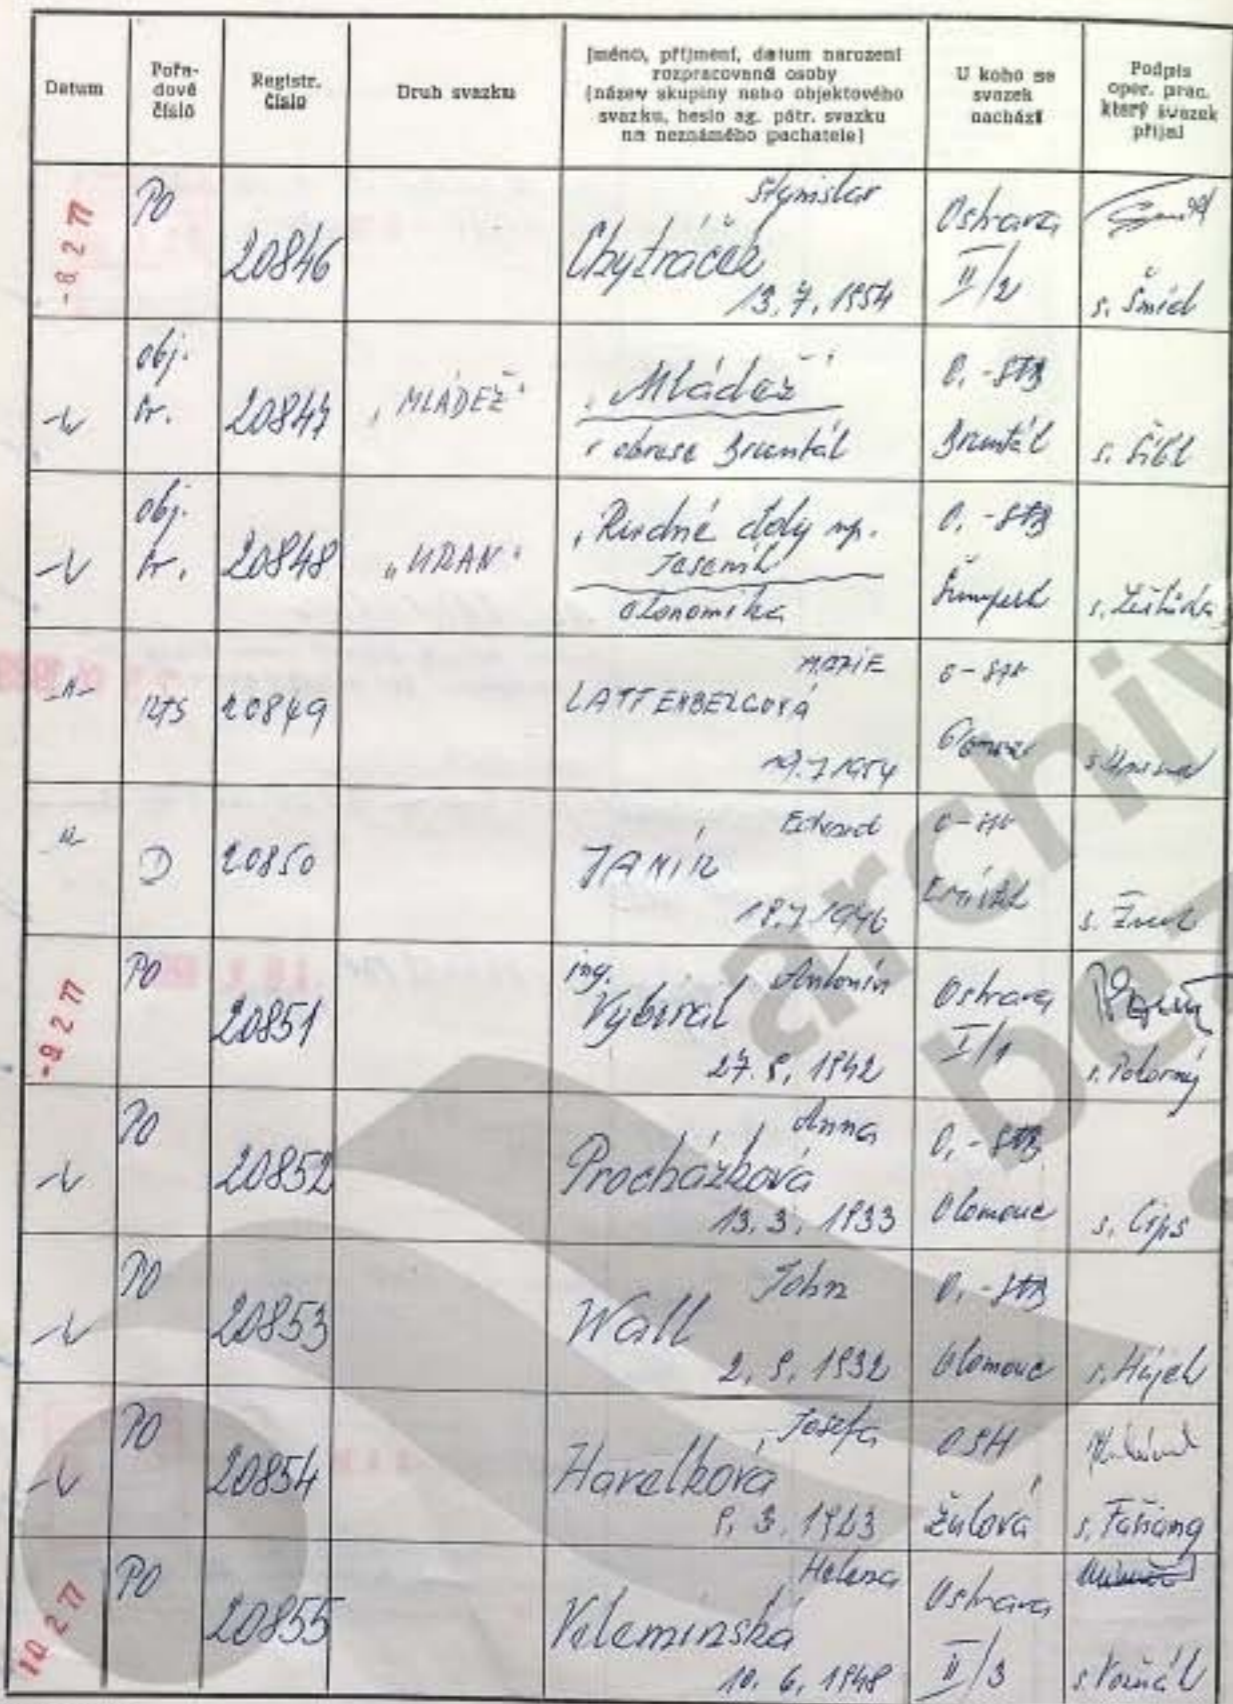 Datum
Pořa-
dové
číslo
Registr.
číslo
Druh svazku
Jméno, příjmení, datum narození
rozpracované osoby
(název skupiny nebo objektového
svazku, heslo ag. pátr. svazku
na neznámého pachatele)
U koho se
svazek
nachází
Podpis
oper. prac.
který svazek
přijal
-8 2 77
PO
20846
Stanislav
Chytráček
13. 7. 1954
Ostrava
II/2
s. Šmíd
obj.
sv.
20847
"MLÁDEŽ"
"Mládež"
v okrese Bruntál
O. - STB
Bruntál
obj.
sv.
20848
"URAN"
"Rudné doly np.
Jeseník
ekonomika
O. - STB
Šumperk
-"-
20849
MARIE
O - STB
"
20850
JANÍK
O - STB
-9 2 77
PO
20851
ing.
Antonín
Vybíral
Ostrava
I/1
s. Pokorný
PO
20852
Anna
Procházková
13. 3. 1933
O. - STB
Olomouc
s. Cips
PO
20853
John
Wall
O. - STB
Olomouc
s. Hájek
PO
20854
Josefa
Havelková
Žulová
s. Fašang
10 2 77
PO
20855
Helena
Vileminská
10. 6. 1948
Ostrava
II/3
archiv